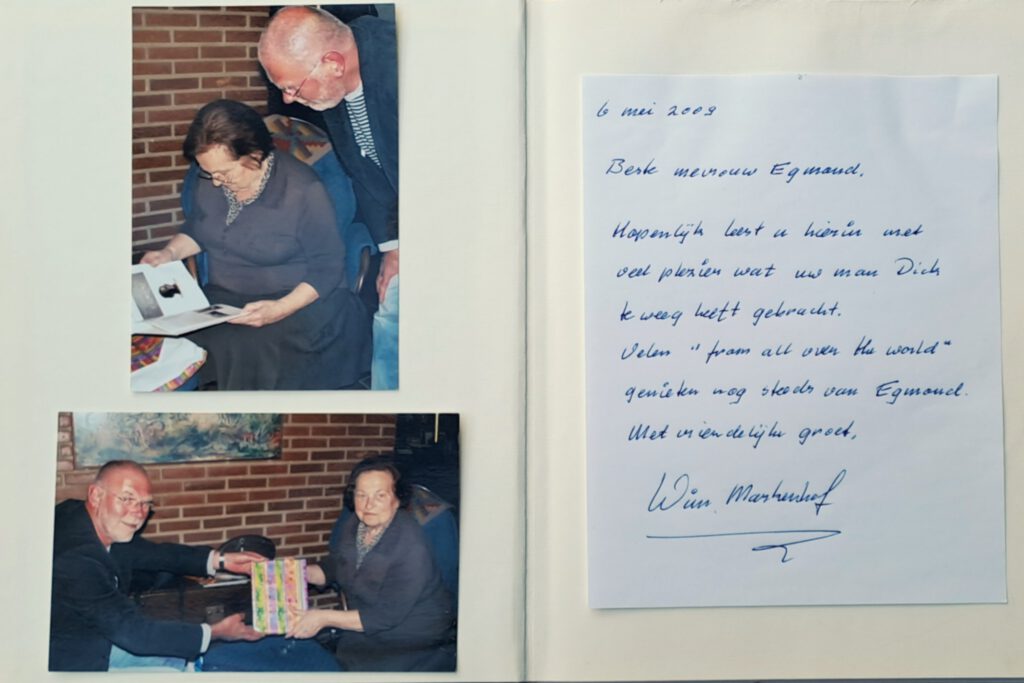 6 mei 2009
Beste mevrouw Egmond,
Hopenlijk leest u hierin met
veel plezier wat uw man Dick
te weeg heeft gebracht.
Velen "from all over the world"
genieten nog steeds van Egmond.
Met vriendelijke groet,
Wim